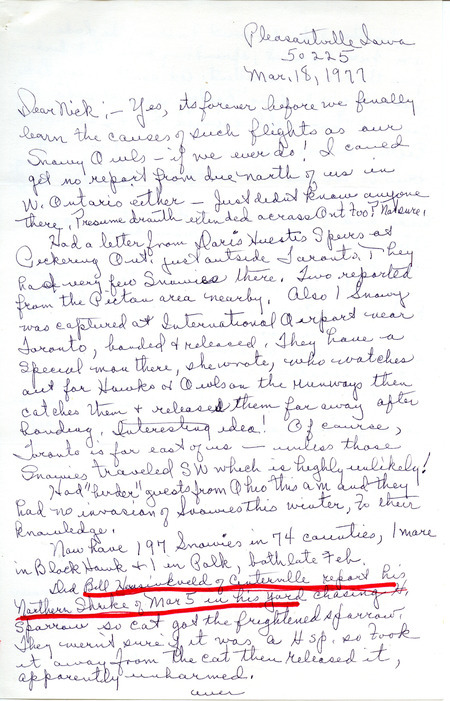 Pleasantville Iowa
50225
Mar. 18, 1977
Dear Nick; - Yes, its forever before we finally
learn the causes of such flights as our
Snowy Owls - if we ever do! I could
get no report from due north of us in
W. Ontario either - Just didn't know anyone
there. Presume drouth extended across Ont too? Not sure.
Had a letter from Doris Huestis Speirs at
Pickering Ont. just outside Toronto. They
had very few Snowies there. Two reported
from the area nearby. Also 1 Snowy
was captured at International Airport near
Toronto, banded & released. They have a
special man there, she wrote, who watches
out for Hawks & Owls on the runways then
catches them & released them far away after
banding. Interesting idea! Of course,
Toronto is far east of us - unless those
Snowies traveled SW which is highly unlikely!
Had "birder" guests from Ohio this am and they
had no invasion of Snowies this winter, to their
knowledge.
Now have 197 Snowies in 74 counties, 1 more
in Black Hawk & 1 in Polk, both late Feb.
Did Bill of Centerville report his
Northern Shrike of Mar 5 in his yard chasing H.
Sparrow so cat got the frightened sparrow.
They weren't sure if it was a H Sp. so took
it away from the cat then released it,
apparently unharmed.
over